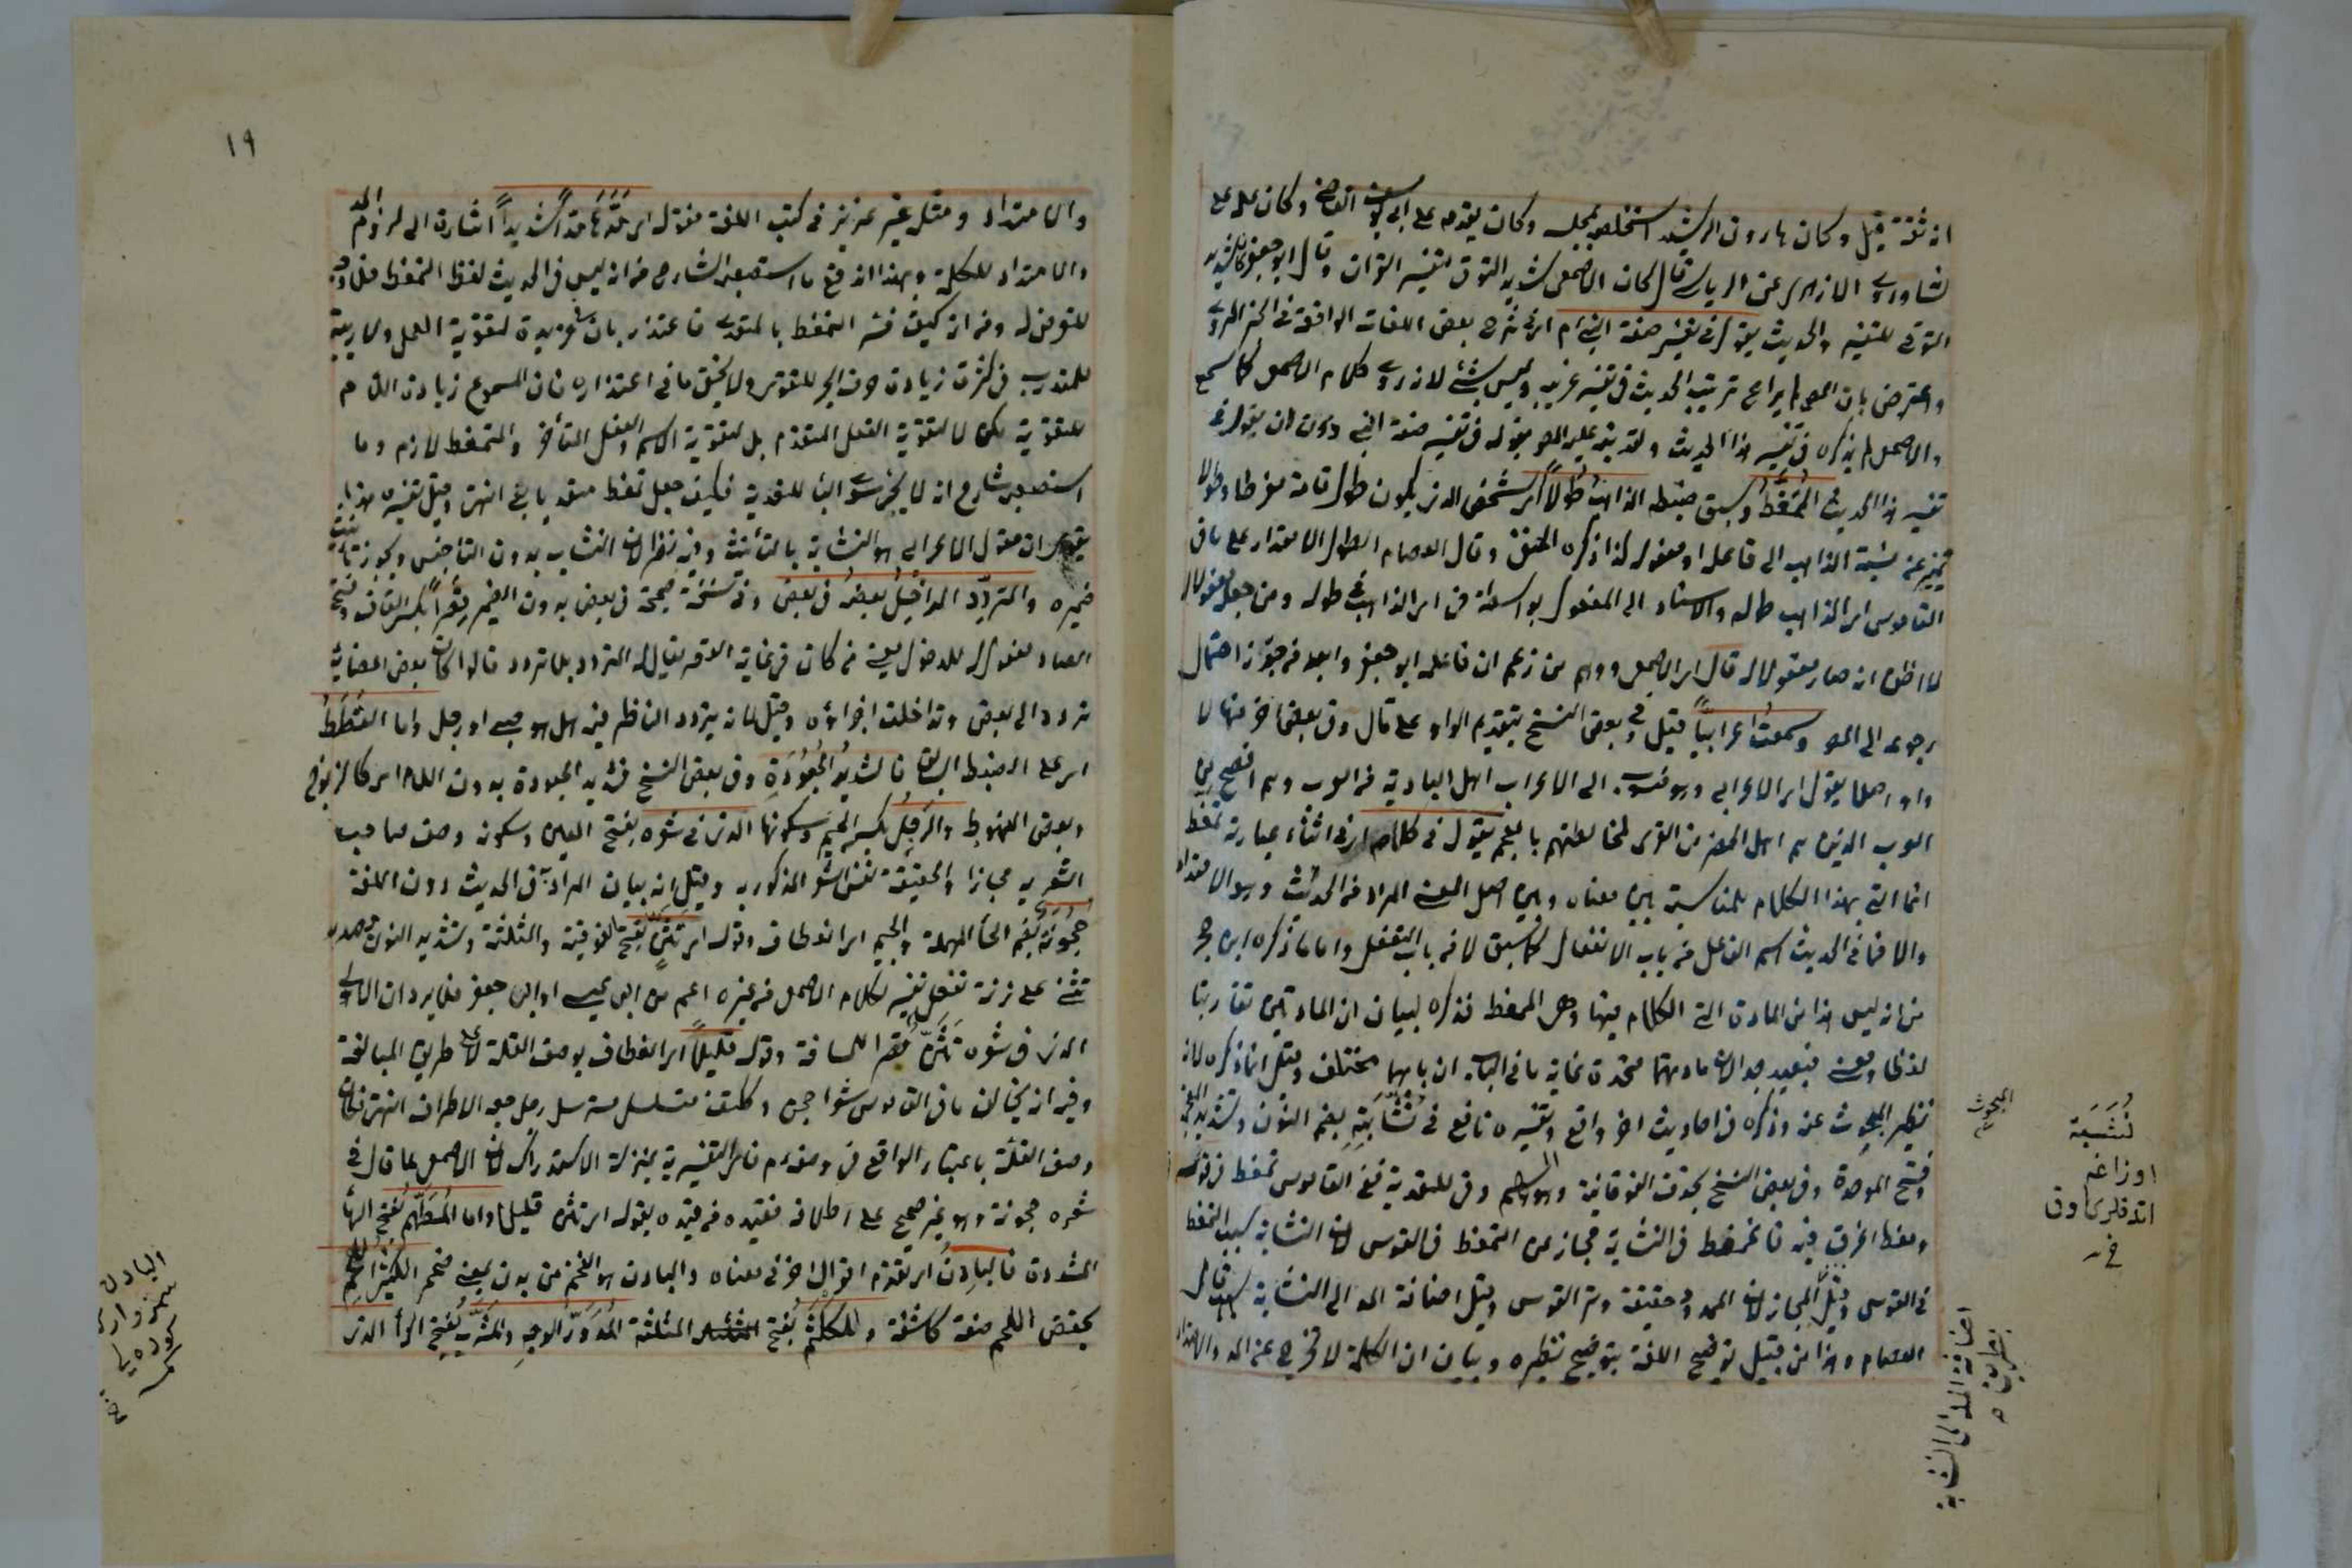 انه ثقة قيل وكان هارون الرشيد استخلصه لمجلسه وكان يقدمه على ابى يوسف القاضى وكان علمه على
لسانه وروى الازهرى عن الرياشى قال كان الاصمعى شديد التوقى لتفسير القران وقال ابو جعفر كان شديد
التوقى لتفسير الحديث يقول فى تفسير صفة النبى ام اى فى شرح بعض اللغات الواقعة فى الخبر المروى
واعترض بان المص لم يراع ترتيب الحديث فى تفسير غريبه وليس بشئ لانه روى كلام الاصمعى كما سمع
والاصمعى لم يذكره فى تفسير هذا الحديث ولقد نبه عليه المص بقوله فى تفسير صفة النبى دون ان يقول فى
تفسير هذا الحديث الممغط وسبق ضبطه الذاهب طولا اى الشخص الذى يكون طول قامته مفرطا وطولا
تمييز عن نسبة الذاهب الى فاعله او مفعول له كذا ذكره الحنفى وقال العصام الطول الامتداد على ما فى
القاموس اى الذاهب طوله والاسناد الى المفعول بواسطة فى اى الذاهب فى طوله ومن جعله مفعولا له
لا اظن انه صار معقولا له قال اى الاصمعى ووهم من زعم ان فاعله ابو جعفر وابعد من جوز احتمال
رجوعه الى المص وسمعت اعرابيا قيل وفى بعض النسخ بتقديم الواو على قال وفى بعضها اخر منها لا
واو اصلا يقول اى الاعرابى وهو منسوب الى الاعراب اهل البادية من العرب وهم افصح من
العرب الذين هم اهل الحضر من القرى لمخالطتهم بالعجم يقول فى كلامه اى فى اثناء عبارته تمغط
انما اتى بهذا الكلام للمناسبة بين معناه وبين اصل المعنى المراد من الحديث وهو الامتداد
والا فما فى الحديث اسم الفاعل من باب الانفعال كما سبق لا من باب التفعل واما ما ذكره ابن حجر
من انه ليس هذا من المادة التى الكلام فيها وهى الممغط فذكره لبيان ان المادتين تقاربتا
لفظا ومعنى فبعيد جدا لان مادتهما متحدة غاية ما فى الباب ان بابهما مختلف وقيل انما ذكره لانه
نظير المبحوث عنه وذكره فى احاديث اخر واقع وتفسيره نافع فى نشابته بضم النون وتشديد المعجمة
وفتح الموحدة وفى بعض النسخ بحذف الفوقانية وهو السهم وفى للتعدية ففى القاموس تمغط فى قوسه
ومغط اغرق فيه فالتمغط فى النشابة مجاز عن التمغط فى القوس لان النشابة سبب التمغط
فى القوس وقيل المجاز لان الممدود حقيقة وتر القوس وقيل اضافة المد الى النشابة قال
العصام وهذا من قبيل توضيح اللغة بتوضيح نظيره وبيان ان الكلمة لا تخرج عن المد والامتداد
المبحوث
نشبة
او زاغه
خ
اضافة المد الى النشابة
١٩
والامتداد ومثله غير عزيز فى كتب اللغة فقوله اى مدها مدا شديدا اشارة الى لزوم المد
والامتداد للكلمة وبهذا اندفع ما استصعبه الشارح من انه ليس فى الحديث لفظ التمغط فلا وجه
للتعرض له ومن انه كيف فسر التمغط بالمتعدى فاعتذر بان فى مزيدة لتقوية العمل ولا ريبة
للمتدرب فى كثرة زيادة حرف الجر للتقوية ولا يخفى ما فى اعتذاره فان المسموع زيادة اللام
للتقوية لكن لا لتقوية الفعل المتقدم بل لتقوية الاسم والفعل المتأخر والتمغط لازم وما
استصعبه شارح انه لا يجئ سوى الباء للتعدية فكيف جعل تمغط متعديا بفى انتهى وقيل تفسيره بهذا
يقوى ان مقول الاعرابى هو النشابة بالتأنيث وفيه نظر لان النشاب بدون التاء جنس ويجوز تأنيث
ضميره والمتردد الداخل بعضه فى بعض وفى نسخة صحيحة فى بعض بدون الضمير قصرا بكسر القاف وفتح
الصاد مفعول له للدخول يعنى من كان فى غاية القصر يقال له المتردد بلا تردد قالوا كان بعض اعضائه
تردد الى بعض وتداخلت اجزاؤه وقيل لانه يتردد الناظر فيه اهل هو صبى او رجل واما القطط
اى على الضبط السابق فالشديد الجعودة وفى بعض النسخ شديد الجعودة بدون اللام اى كالزنوج
وبعض الهنود والرجل بكسر الجيم وسكونها الذى فى شعره بفتح العين وسكونه وصف صاحب
الشعر به مجازا والحقيقة نفس الشعر المذكور به وقيل انه بيان المراد به فى الحديث دون اللغة
حجونة بضم الحاء المهملة والجيم اى انعطاف وقوله اى تثن بفتح الفوقية والمثلثة وتشديد النون مصدر
تثنى على زنة تفعل تفسير لكلام الاصمعى من غيره اعم من ابى عيسى او ابى جعفر فلا يرد ان الاولى
الذى فى شعره تثن قصرا للمسافة وقوله قليلا اى انعطاف بوصف القلة لا على طريق المبالغة
وفيه انه يخالف ما فى القاموس شعر احجن وككتف متسلسل مسترسل رجل جعد الاطراف انتهى فكان
وصف القلة باعتبار الواقع فى وصفه م فاى التفسيرية بمنزلة الاستدراك لان الاصمعى لما قال فى
شعره حجونة وهو غير صحيح على اطلاقه فقيده من قيده بقوله اى تثن قليلا واما المطهم بفتح الهاء
المشددة فالبادن اى تقدم اقوال اخر فى معناه والبادن هو الضخم من بدن بمعنى ضخم الكثير اللحم
بخفض اللحم صفة كاشفة والمكلثم بفتح المثلثة المدور الوجه والمشرب بفتح الراء الذى
البادن
سمز
خ